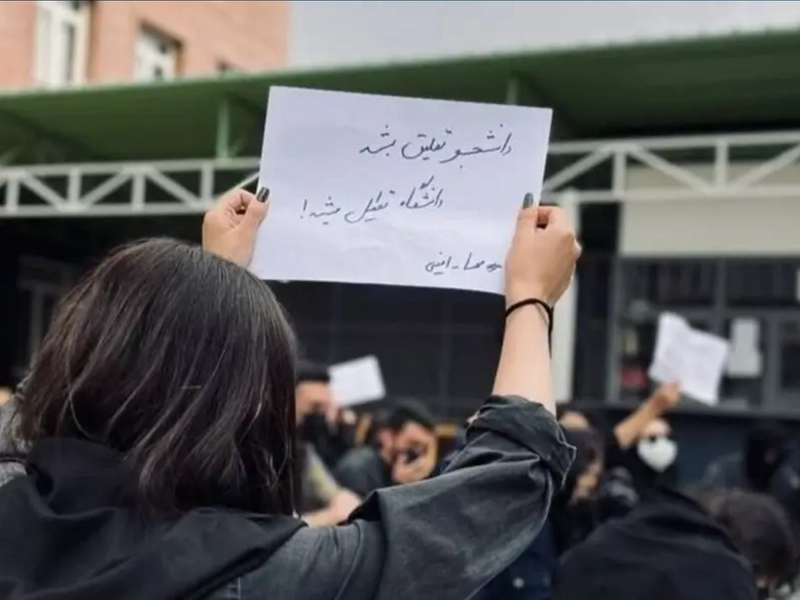 دانشجو تعلیق بشه
دانشگاه تعطیل میشه!
#مهسا_امینی